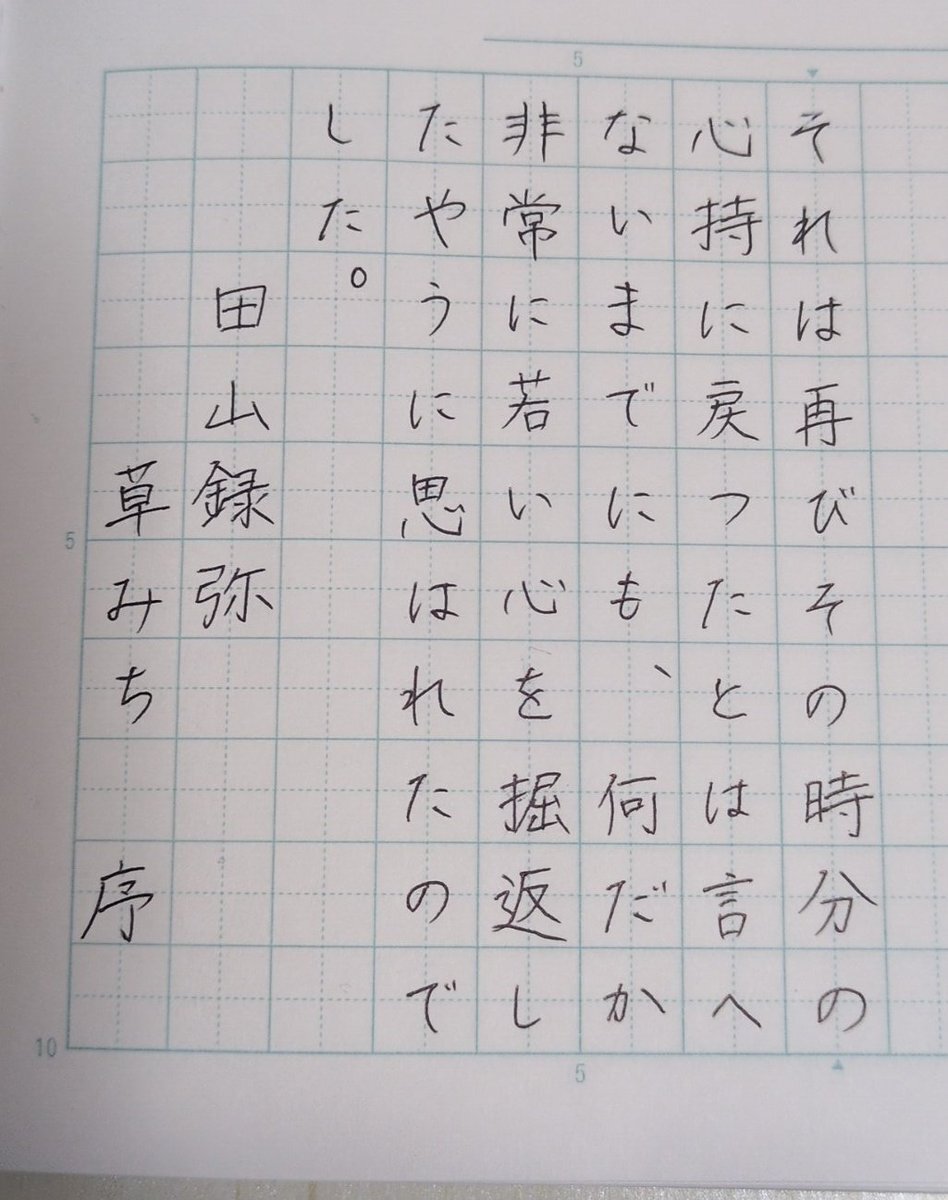 それは再びその時分の
心持に戻つたとは言へ
ないまでにも、何だか
非常に若い心を掘返し
たやうに思はれたので
した。
田山録弥
草みち 序
5
5
5
10